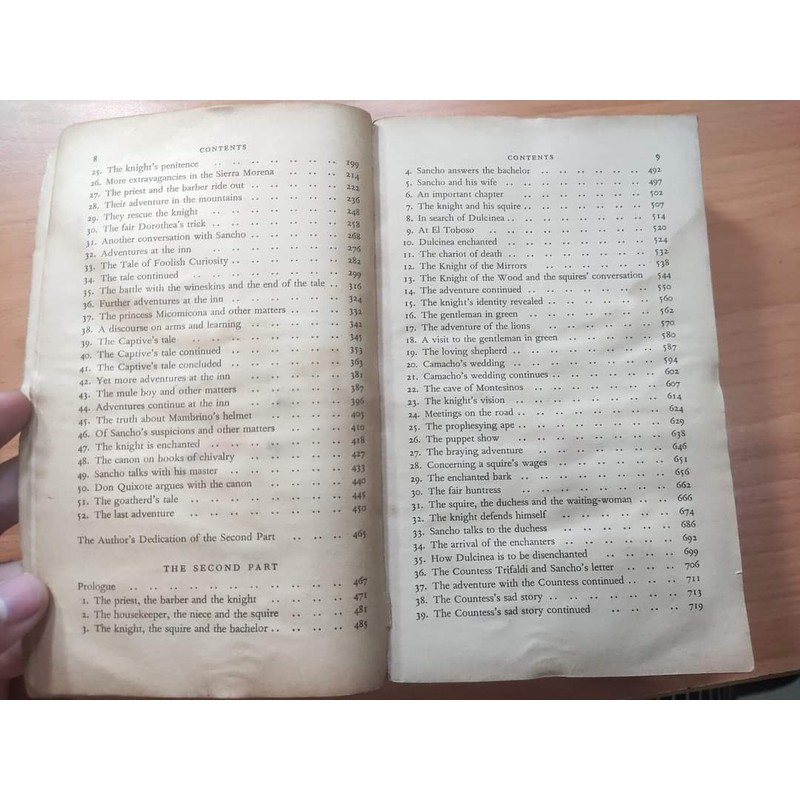 8 CONTENTS
25. The knight's penitence .. .. .. .. .. .. .. 199
26. More extravagancies in the Sierra Morena .. .. .. 214
27. The priest and the barber ride out .. .. .. .. .. 222
28. Their adventure in the mountains .. .. .. .. .. 236
29. They rescue the knight .. .. .. .. .. .. 248
30. The fair Dorothea's trick .. .. .. .. .. .. 258
31. Another conversation with Sancho .. .. .. .. .. 268
32. Adventures at the inn .. .. .. .. .. .. 276
33. The Tale of Foolish Curiosity .. .. .. .. .. .. 282
34. The tale continued .. .. .. .. .. .. .. 299
35. The battle with the wineskins and the end of the tale .. 316
36. Further adventures at the inn .. .. .. .. .. 324
37. The princess Micomicona and other matters .. .. .. 332
38. A discourse on arms and learning .. .. .. .. .. 342
39. The Captive's tale .. .. .. .. .. .. .. 345
40. The Captive's tale continued .. .. .. .. .. .. 353
41. The Captive's tale concluded .. .. .. .. .. .. 363
42. Yet more adventures at the inn .. .. .. .. .. 381
43. The mule boy and other matters .. .. .. .. .. 387
44. Adventures continue at the inn .. .. .. .. .. 396
45. The truth about Mambrino's helmet .. .. .. .. 403
46. Of Sancho's suspicions and other matters .. .. .. 410
47. The knight is enchanted .. .. .. .. .. .. 418
48. The canon on books of chivalry .. .. .. .. .. 427
49. Sancho talks with his master .. .. .. .. .. .. 433
50. Don Quixote argues with the canon .. .. .. .. 440
51. The goatherd's tale .. .. .. .. .. .. .. 445
52. The last adventure .. .. .. .. .. .. .. 450
The Author's Dedication of the Second Part .. .. .. 465
THE SECOND PART
Prologue .. .. .. .. .. .. .. .. .. 467
1. The priest, the barber and the knight .. .. .. .. 471
2. The housekeeper, the niece and the squire .. .. .. 481
3. The knight, the squire and the bachelor .. .. .. .. 485
CONTENTS 9
4. Sancho answers the bachelor .. .. .. .. .. .. 492
5. Sancho and his wife .. .. .. .. .. .. .. 497
6. An important chapter .. .. .. .. .. .. 502
7. The knight and his squire .. .. .. .. .. .. 507
8. In search of Dulcinea .. .. .. .. .. .. .. 514
9. At El Toboso .. .. .. .. .. .. .. 520
10. Dulcinea enchanted .. .. .. .. .. .. .. 524
11. The chariot of death .. .. .. .. .. .. .. 532
12. The Knight of the Mirrors .. .. .. .. .. .. 538
13. The Knight of the Wood and the squires' conversation 544
14. The adventure continued .. .. .. .. .. .. 550
15. The knight's identity revealed .. .. .. .. .. .. 560
16. The gentleman in green .. .. .. .. .. .. 562
17. The adventure of the lions .. .. .. .. .. .. 570
18. A visit to the gentleman in green .. .. .. .. .. 580
19. The loving shepherd .. .. .. .. .. .. .. 587
20. Camacho's wedding .. .. .. .. .. .. .. 594
21. Camacho's wedding continues .. .. .. .. .. .. 602
22. The cave of Montesinos .. .. .. .. .. .. 607
23. The knight's vision .. .. .. .. .. .. .. 614
24. Meetings on the road .. .. .. .. .. .. .. 624
25. The prophesying ape .. .. .. .. .. .. .. 629
26. The puppet show .. .. .. .. .. .. .. 638
27. The braying adventure .. .. .. .. .. .. 646
28. Concerning a squire's wages .. .. .. .. .. .. 651
29. The enchanted bark .. .. .. .. .. .. .. 656
30. The fair huntress .. .. .. .. .. .. .. 662
31. The squire, the duchess and the waiting-woman .. .. 666
32. The knight defends himself .. .. .. .. .. .. 674
33. Sancho talks to the duchess .. .. .. .. .. .. 686
34. The arrival of the enchanters .. .. .. .. .. .. 692
35. How Dulcinea is to be disenchanted .. .. .. .. 699
36. The Countess Trifaldi and Sancho's letter .. .. .. 706
37. The adventure with the Countess continued .. .. .. 711
38. The Countess's sad story .. .. .. .. .. .. 713
39. The Countess's sad story continued .. .. .. .. 719